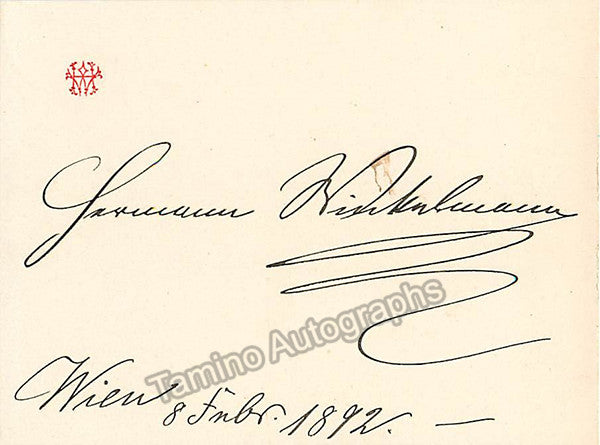 Hermann Winkelmann
Tamino Autographs
Wien 8 Febr. 1892. —